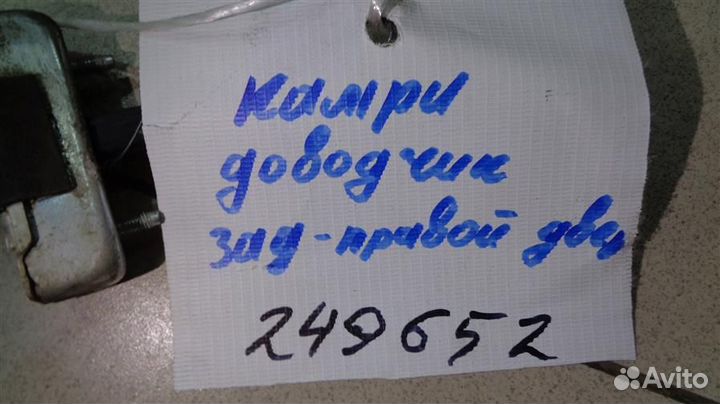 камри
доводчик
зад-правой двер
249652
Avito